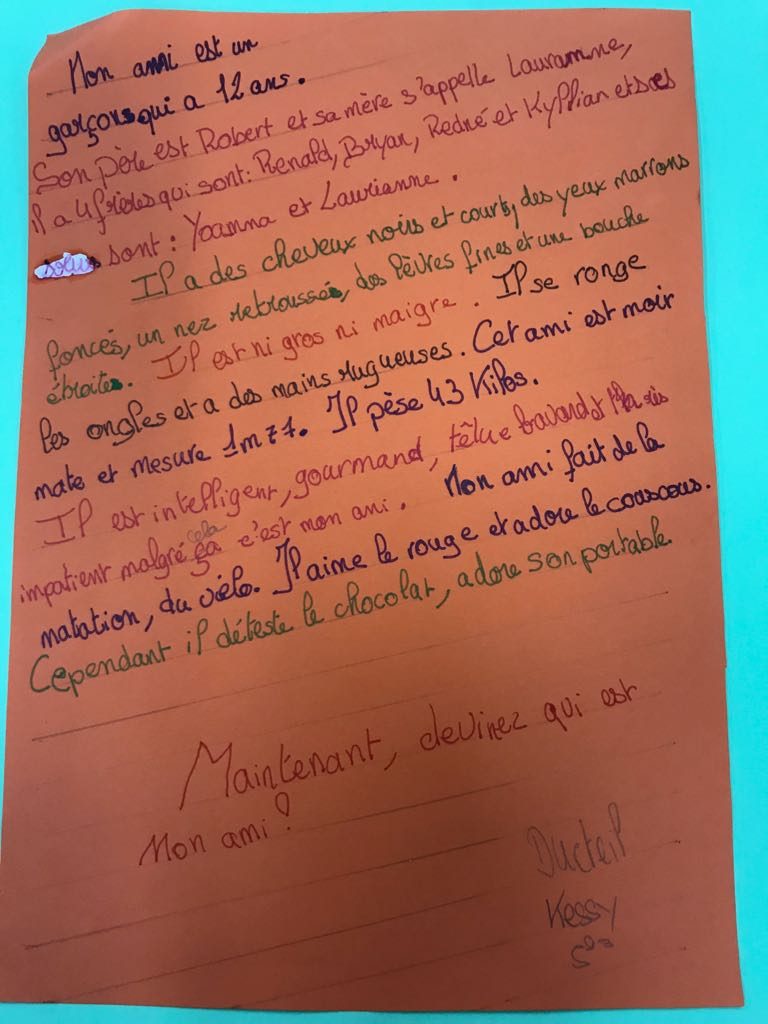 Mon ami est un
garçons qui a 12 ans.
Son père est Robert et sa mère s'appelle Lauranne,
il a 4 frères qui sont: Renald, Bryan, Redné et Kyllian et ses
sont: Yoanna et Laurianne.
Il a des cheveux noirs et courts, des yeux marrons
foncés, un nez retroussé, des lèvres fines et une bouche
étroite. Il est ni gros ni maigre. Il se ronge
les ongles et a des mains rugueuses. Cet ami est noir
mate et mesure 1m71. Il pèse 43 Kilos.
Il est intelligent, gourmand, têtue bavard et
impatient malgré cela c'est mon ami. Mon ami fait de la
natation, du vélo. Il aime le rouge et adore le couscous.
Cependant il déteste le chocolat, adore son portable.
Maintenant, devinez qui est
Mon ami?
Ducteil
Kessy